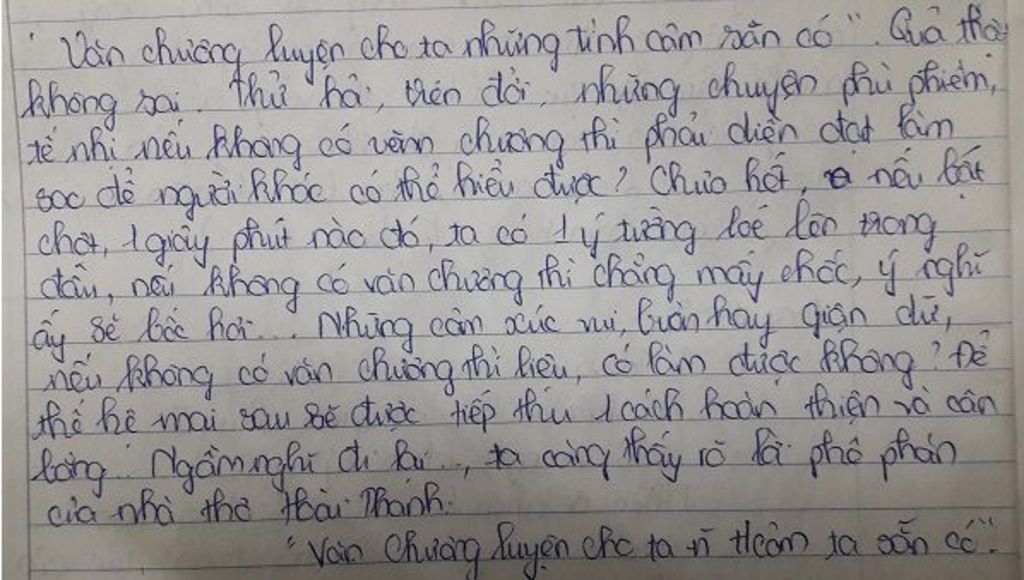 "Văn chương luyện cho ta những tình cảm sẵn có". Quả thật
không sai. Thử hỏi, trên đời, những chuyện phù phiếm,
tế nhị nếu không có văn chương thì phải diễn đạt làm
sao để người khác có thể hiểu được? Chưa hết, nếu bất
chợt, 1 giây phút nào đó, ta có 1 ý tưởng loé lên trong
đầu, nếu không có văn chương thì chẳng mấy chốc, ý nghĩ
ấy sẽ bốc hơi... Những cảm xúc vui, buồn hay giận dữ,
nếu không có văn chương thì liệu, có làm được không? Để
thế hệ mai sau sẽ được tiếp thu 1 cách hoàn thiện và cân
bằng. Ngẫm nghĩ đi lại..., ta càng thấy rõ lời phê phán
của nhà thơ Hoài Thanh.
"Văn chương luyện cho ta ta sẵn có".